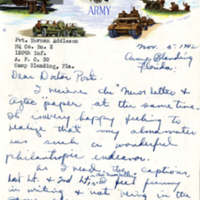 ARMY
Pvt. Norman Addleson
HQ Co. Bn. 2
120th Inf.
A. P. O. 30
Camp Blanding, Fla.
Nov. 5 - '42
Camp Blanding
Florida.
Dear Doctor Post:
I receive the News letter &
Aztec paper at the same time.
It's a very happy feeling to
realize that my alma mater
has such a wonderful
philanthropic endeavor.
As I read the captions,
1st Lt. & 2nd Lt., I feel funny
in writing & not being in the